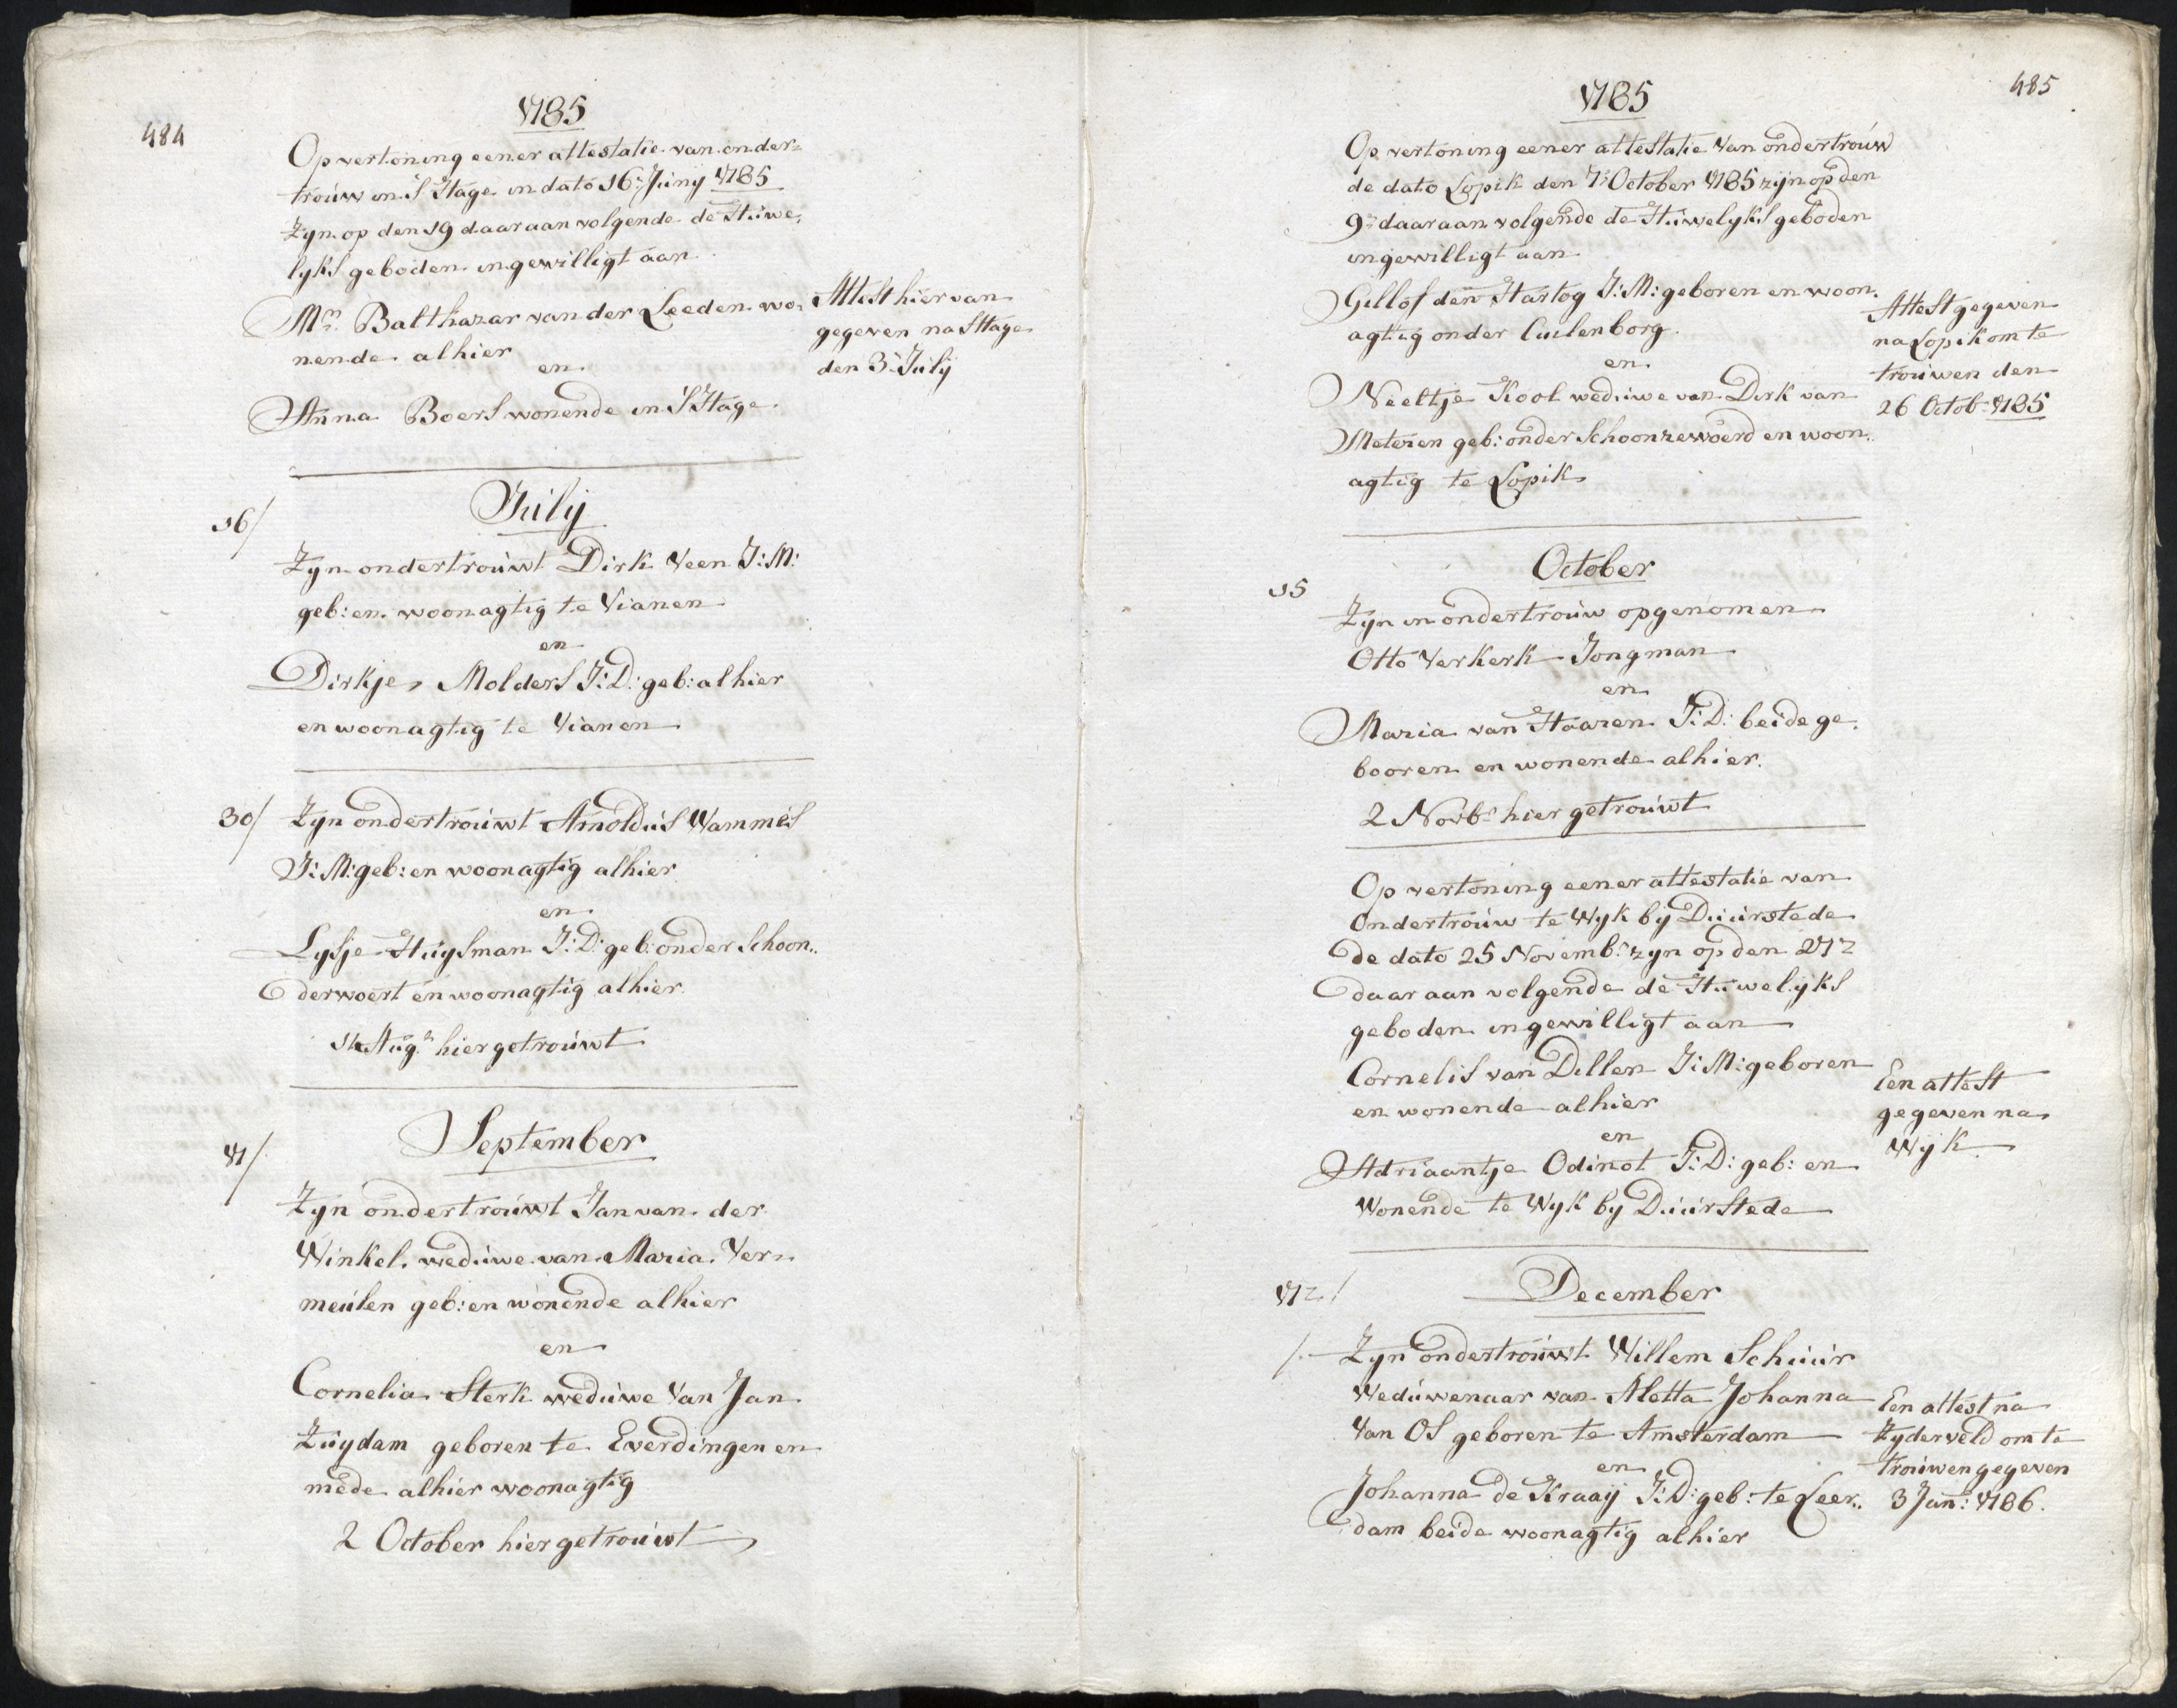 484
1785
Op vertoning eener attestatie van onder=
trouw in S Hage in dato 16: Juny 1785
Zyn op den 19 daar aan volgende de Huwe,
lyks geboden ingewilligt aan
Mr. Balthazar van der Leeden wo,
nende alhier
en
Anna Boers wonende in S Hage
Attest hier van
gegeven na S Hage
den 3 July
July
16/
Zyn ondertrouwt Dirk Veen J:M:
geb: en woonagtig te Vianen
en
Dirkje Molders J:D: geb: alhier
en woonagtig te Vianen
30/ Zyn ondertrouwt Arnoldus Wammes
J:M: geb: en woonagtig alhier
en
Lysje Huysman J:D: geb: onder Schoon,,
derwoert en woonagtig alhier
14 Augs. hier getrouwt
September
17/
Zyn ondertrouwt Jan van der
Winkel weduwe van Maria Ver,,
meulen geb: en wonende alhier
en
Cornelia Sterk weduwe Van Jan
Zuydam geboren te Everdingen en
mede alhier woonagtig
2 October hier getrouwt
485
1785
Op vertoning eener attestatie Van ondertrouw
de dato Lopik den 7: October 1785 zijn op den
9: daar aan volgende de Huwelyks geboden
ingewilligt aan
Gellof den Hartog J:M: geboren en woon,
agtig onder Cuilenborg
en
Neeltje Kool weduwe van Dirk van
Meteren geb: onder Schoonrewoerd en woon,,
agtig te Lopik
Attest gegeven
na Lopik om te
trouwen den
26 Octob: 1785
October
15
Zyn in ondertrouw opgenomen
Otto Verkerk Jongman
en
Maria van Haaren J:D: beide ge,
booren en wonende alhier.
2 Novbr. hier getrouwt
Op vertoning eener attestatie van
Ondertrouw te Wyk bij Duurstede
de dato 25 Novembr. zyn op den 27
daar aan volgende de Huwelijks
geboden ingewilligt aan
Cornelis van Dillen J:M: geboren
en wonende alhier
en
Adriaantje Odinot J:D: geb: en
Wonende te Wyk by Duurstede
Een attest
gegeven na
Wijk
December
17 /
/. Zyn ondertrouwt Willem Schuur
Weduwenaar van Aletta Johanna
Van Os geboren te Amsterdam
en
Johanna de Kraaij J:D: geb: te Leer,,
dam beide woonagtig alhier
Een attest na
Zyderveld om te
trouwen gegeven
3 Jan: 1786.